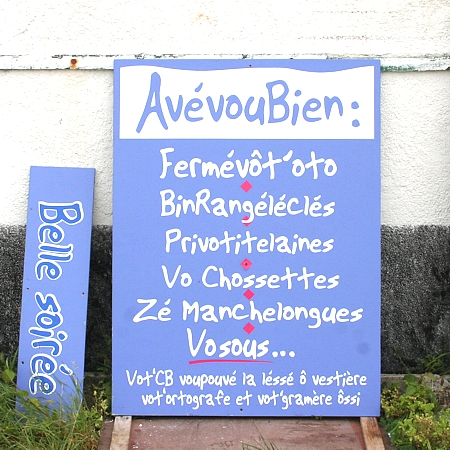 AvévouBien :
Fermévôt'oto
BinRangéléclés
Privotitelaines
Vo Chossettes
Zé Manchelongues
Vosous...
Vot'CB voupouvé la léssé ô vestière
vot'ortografe et vot'gramère ôssi
Belle soirée